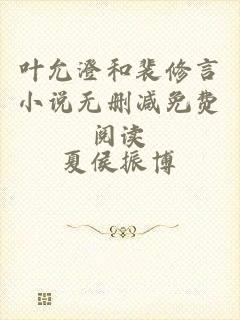 叶允澄和裴修言
小说无删减免费
阅读
夏侯振博